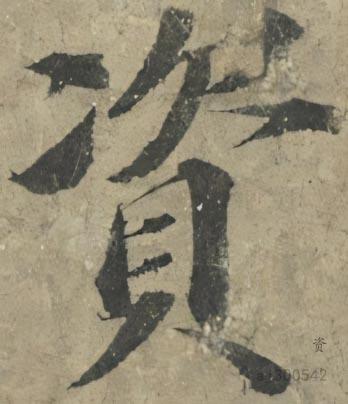 資
资
a1300542